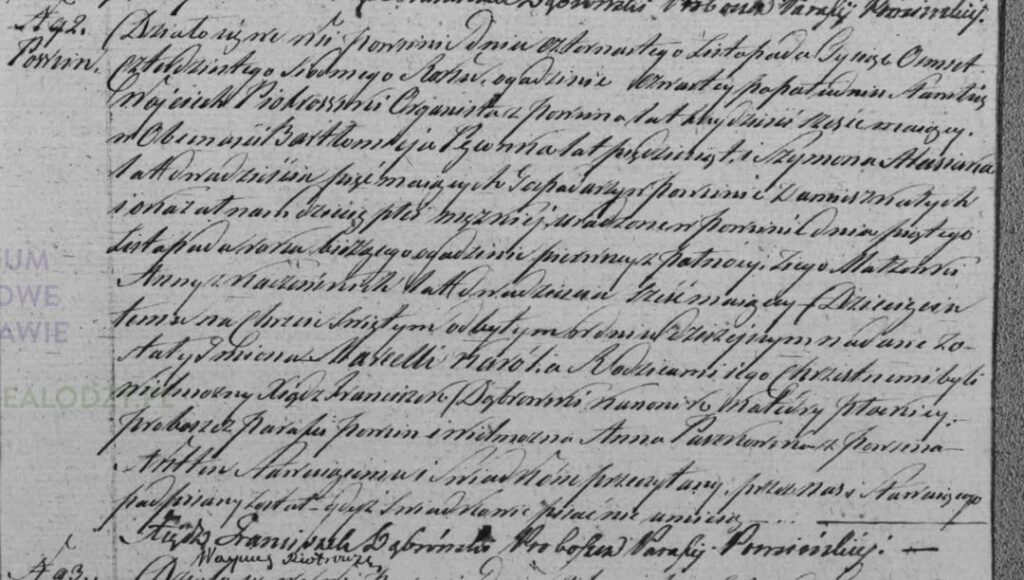 Dąbrowski Proboszcz Parafij Powsinskiej.
N 92.
Powsin.
Działo się we wsi Powsinie dnia czternastego Listopada Tysiąc Ośmset
czterdziestego siodmego Roku, o godzinie czwartey po południu Stawił się
Wojciech Piotrowski Organista z Powsina lat trzydzieści sześć maiący,
w Obecności Bartłomieja lat pięćdziesiąt, i Szymona
lat dwadzieścia pięć maiących Gospodarzy w Powsinie Zamieszkałych
i okazał nam dziecię płci męzkiej, urodzone w Powsinie dnia piątego
Listopada roku bieżącego o godzinie pierwszej z północy, z iego Małżonki
Anny z lat dwadzieścia sześć maiącey. Dziecięciu
temu na Chrzcie Świętym odbytym w dniu dzisiejszym nadane zo-
stały Imiona Marcelli Karól, a Rodzicami iego Chrzestnemi byli
Wielmożny Xiądz Franciszek Dąbrowski Kanonik Katedry Płockiey
proboszcz Parafii Powsin i Wielmożna Anna z Powsina
Akt ten Stawaiącemu i Świadkóm przeczytany, przez nas i Stawaiącego
podpisany został gdyż Świadkowie pisać nie umieią
Xiądz Franciszek Dąbrowski Proboszcz Parafij Powsińskiej.
Piotrowski
N 93.
UM
OWE
AWIE
EALODZY.PL